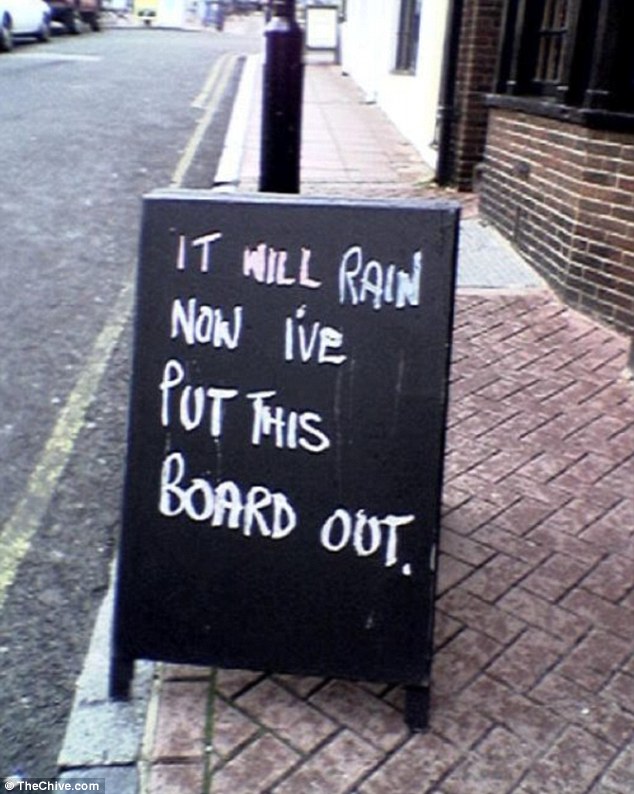 IT WILL RAIN
NOW I'VE
PUT THIS
BOARD OUT.
© TheChive.com